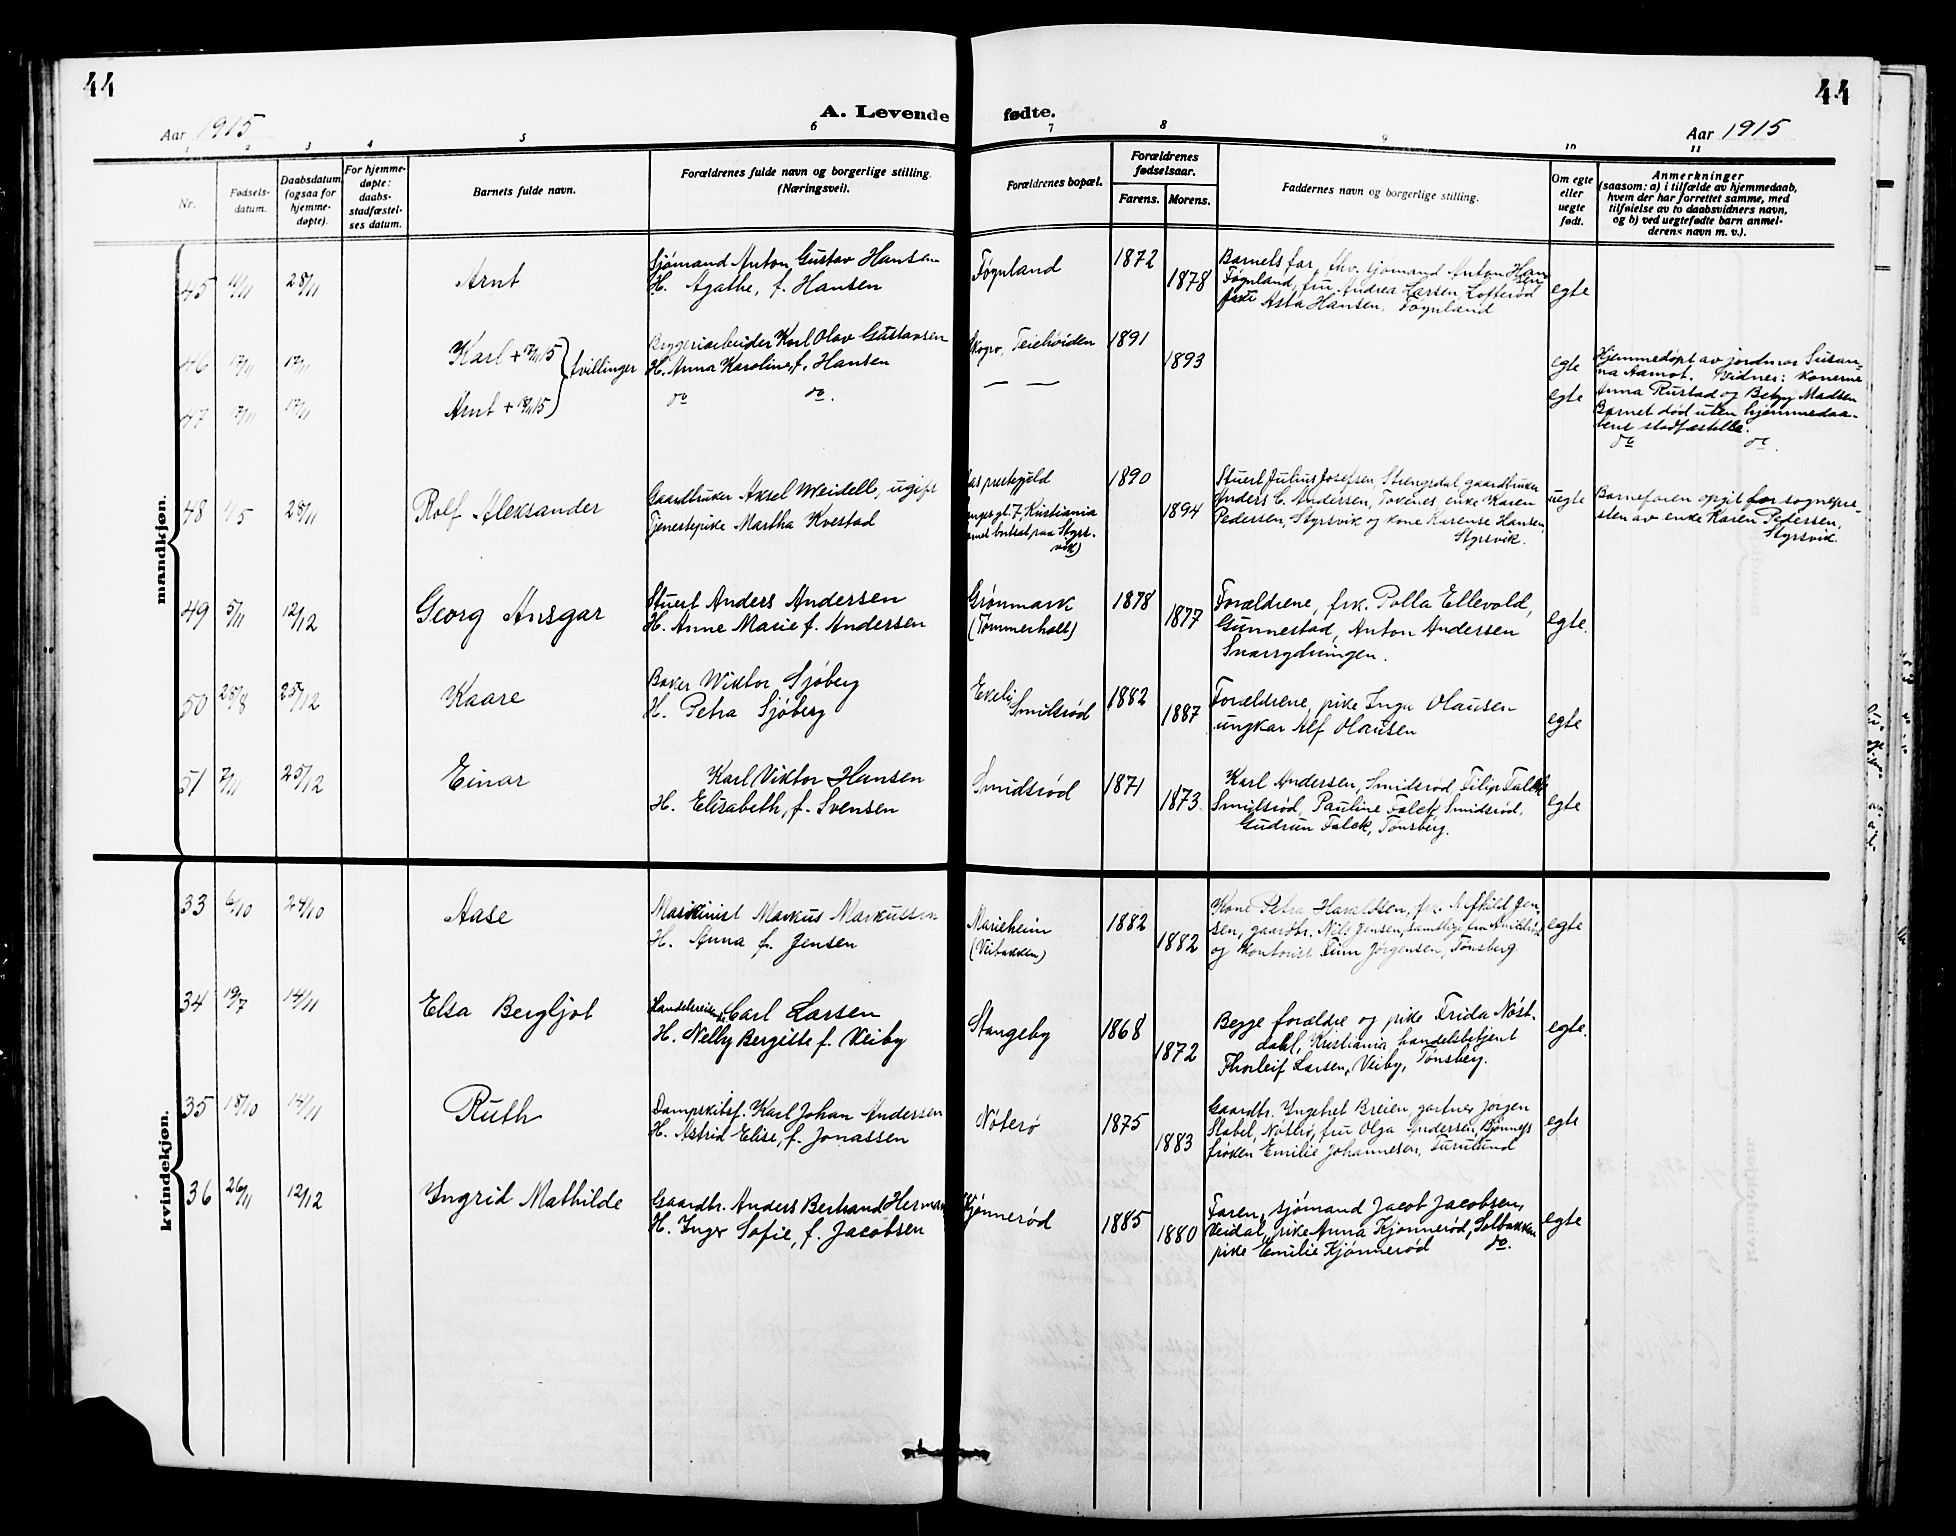 44
44
A. Levende fødte.
Aar 1915
Aar 1915
1 2 3 4 5 6 7 8 9 10 11
Nr.
Fødsels-datum.
Daabsdatum (ogsaa for hjemme-døpte).
For hjemme-døpte: daabs-stadfæstel-ses datum.
Barnets fulde navn.
Forældrenes fulde navn og borgerlige stilling. (Næringsvei).
Forældrenes bopæl.
Forældrenes fødselsaar.
Farens. Morens.
Faddernes navn og borgerlige stilling.
Om egte eller uegte født.
Anmerkninger
(saasom: a) i tilfælde av hjemmedaab,
hvem der har forrettet samme, med
tilføielse av to daabsvidners navn,
og b) ved uegtefødte barn anmel-
derens navn m. v.).
mandkjøn.
45 11/11 28/11 Arnt
Sjømand Anton Gustav Hansen
H. Agathe, f. Hansen
Føynland 1872 1878
Barnets far, fhv. sjømand Anton Hansen
Føynland, fru Andrea Larsen, Lofterød
Asta Hansen, Føynland
egte
46 17/11 17/11 Karl + 17/11 15 } tvillinger
Bryggeriarbeider Karl Olav Gustavsen
H. Anna Karoline, f. Hansen
Skogro, Teiehøiden 1891 1893
egte
Hjemmedøpt av jordmor Susan-
na Aamot. Vidner: konerne
Anna Rustad og Betzy Madsen
Barnet død uten hjemmedaa-
bens stadfæstelse.
47 17/11 17/11 Arnt + 18/11 15
do do.
— —
egte
do do.
48 1/5 28/11 Rolf Aleksander
Gaardbruker Aksel Weidell, ugift
Tjenestepike Martha Kvestad
Aas prestegjeld
gt. 7, Kristiania
bortsat paa Styrs-
vik)
1890 1894
Stuert Julius Josefsen, Strengsdal, gaardbruker
Anders C. Andersen, Torenes, enke Karen
Pedersen, Styrsvik og kone Karense Hansen,
Styrsvik.
uegte
Barnefaren opgit for sognepre-
sten av enke Karen Pedersen,
Styrsvik.
49 5/11 12/12 Georg Ansgar
Stuert Anders Andersen
H. Anne Marie f. Andersen
Grønmark
(Tømmerholt)
1878 1877
Forældrene, frk. Polla Ellevold,
Gunnestad, Anton Andersen
Snarrydningen.
egte.
50 25/8 25/12 Kaare
Baker Wiktor Sjøberg
H. Petra Sjøberg
Ekeli
Smidsrød
1882 1887
Forældrene, pike Inga Olausen
ungkar Alf Olausen
egte
51 7/11 25/12 Einar
Karl Viktor Hansen
H. Elisabeth, f. Svensen
Smidsrød 1871 1873
Karl Andersen, Smidsrød, Filip Falck
Smidsrød, Pauline Falck, Smidsrød,
Gudrun Falck, Tønsberg.
egte
kvindekjøn.
33 6/10 24/10 Aase
Maskinist Markus Markussen
H. Anna f. Jensen
Marieheim
(Veibakken)
1882 1882
Kone Petra Haraldsen, frk. Jen-
sen, gaardbr. Nils Jensen, samtlige fra
og kontorist Finn Jørgensen, Tønsberg
egte
34 19/7 14/11 Elsa Bergljot
Handelsreisende Carl Larsen
H. Nelly Bergitte f. Veiby
Stangeby 1868 1872
Begge forældre og pike Frida Nøst-
dahl, Kristiania handelsbetjent
Thorleif Larsen, Veiby, Tønsberg.
egte.
35 18/10 14/11 Ruth
Dampskibsf. Karl Johan Andersen
H. Astrid Elise, f. Jonassen
Nøterø 1875 1883
Gaardbr. Ingebret Breien, gartner Jørgen
Slabel, Nøtterø, fru Olga Andersen, Bjønnes
frøken Emilie Johannesen, Furulund
egte
36 26/11 12/12 Ingrid Mathilde
Gaardbr. Anders Bertrand Herman
H. Inger Sofie, f. Jacobsen
Kjønnerød 1885 1880
Faren, sjømand Jacob Jacobsen,
Veidal, pike Anna Kjønnerød, Solbakken
pike Emilie Kjønnerød do.
egte